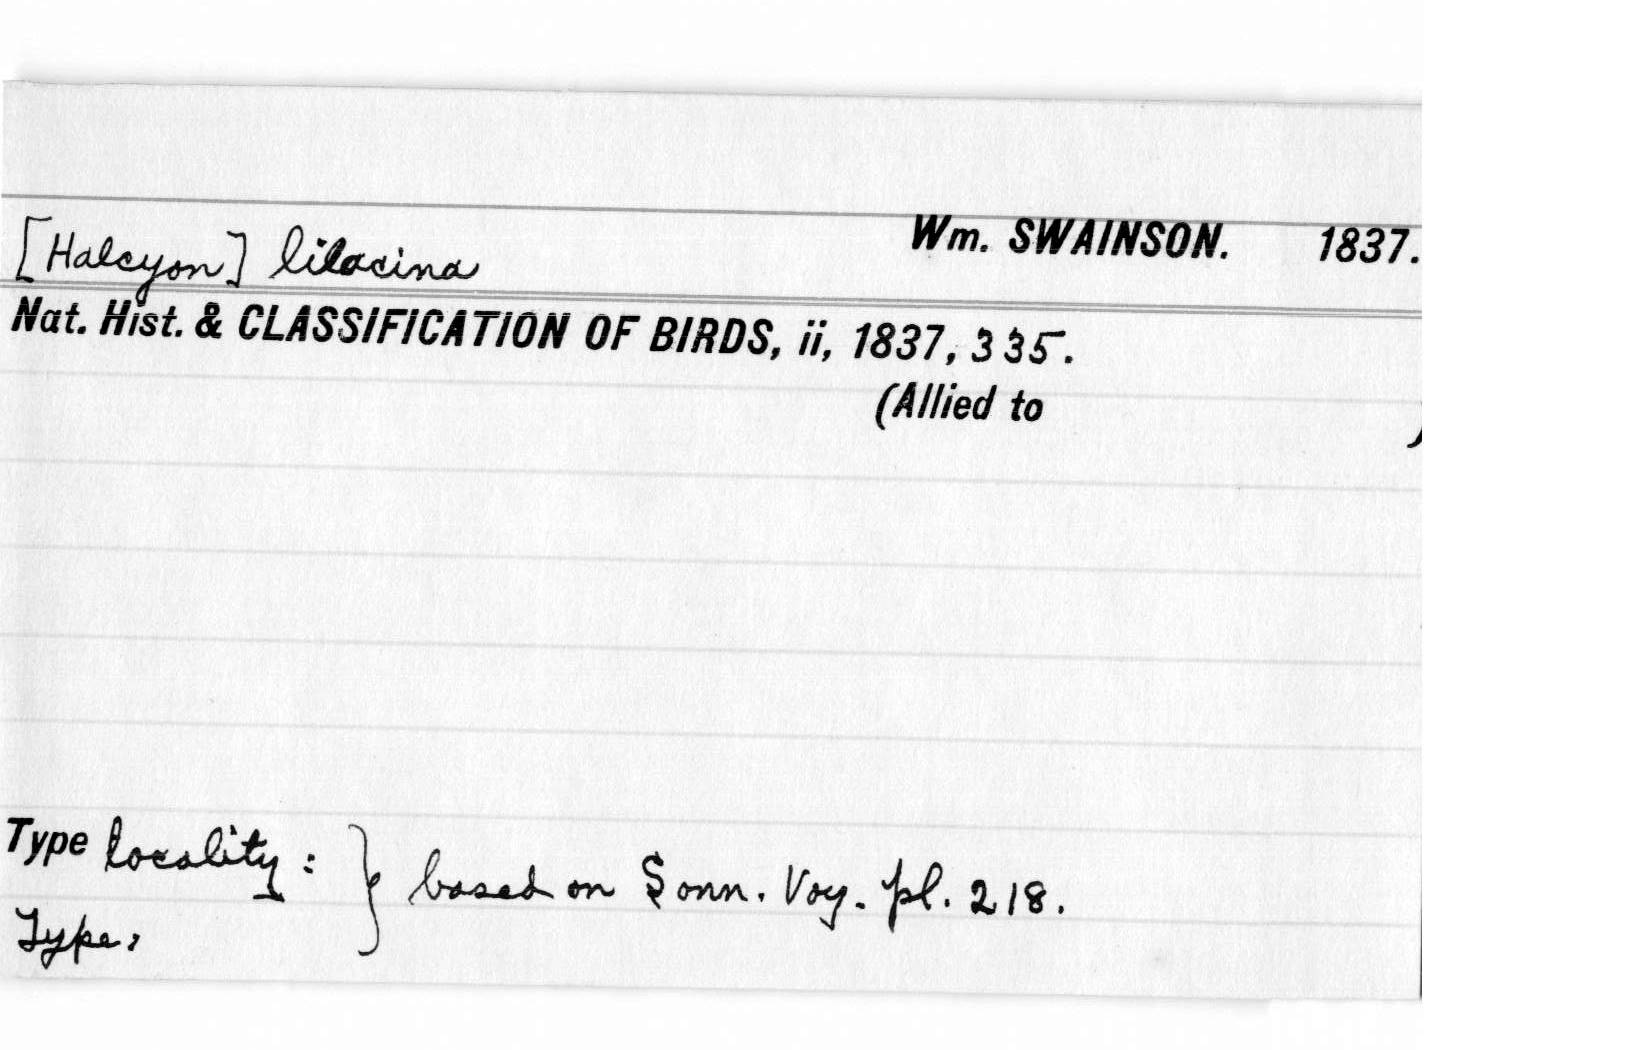 [Halcyon] lilacina Wm. SWAINSON. 1837.
Nat. Hist. & CLASSIFICATION OF BIRDS, ii, 1837, 335.
(Allied to )
Type locality : } based on Sonn. Voy. pl. 218.
Type,